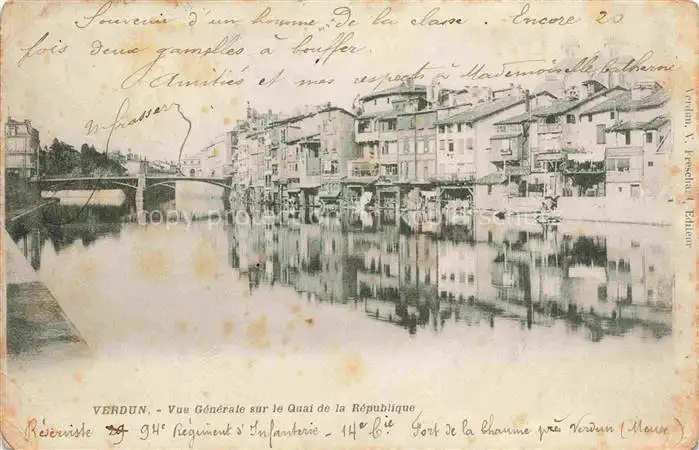 Souvenir d'un homme De la classe. Encore 20
fois deux gamelles à bouffer.
Amitiés et mes respect à Mademoiselle Catherine
Verdun, F. Freschard Editeur
copyright
VERDUN. - Vue Générale sur le Quai de la République
Réserviste 94e Régiment d'Infanterie - 14e Cie Fort de la Chaume près Verdun (Meuse)